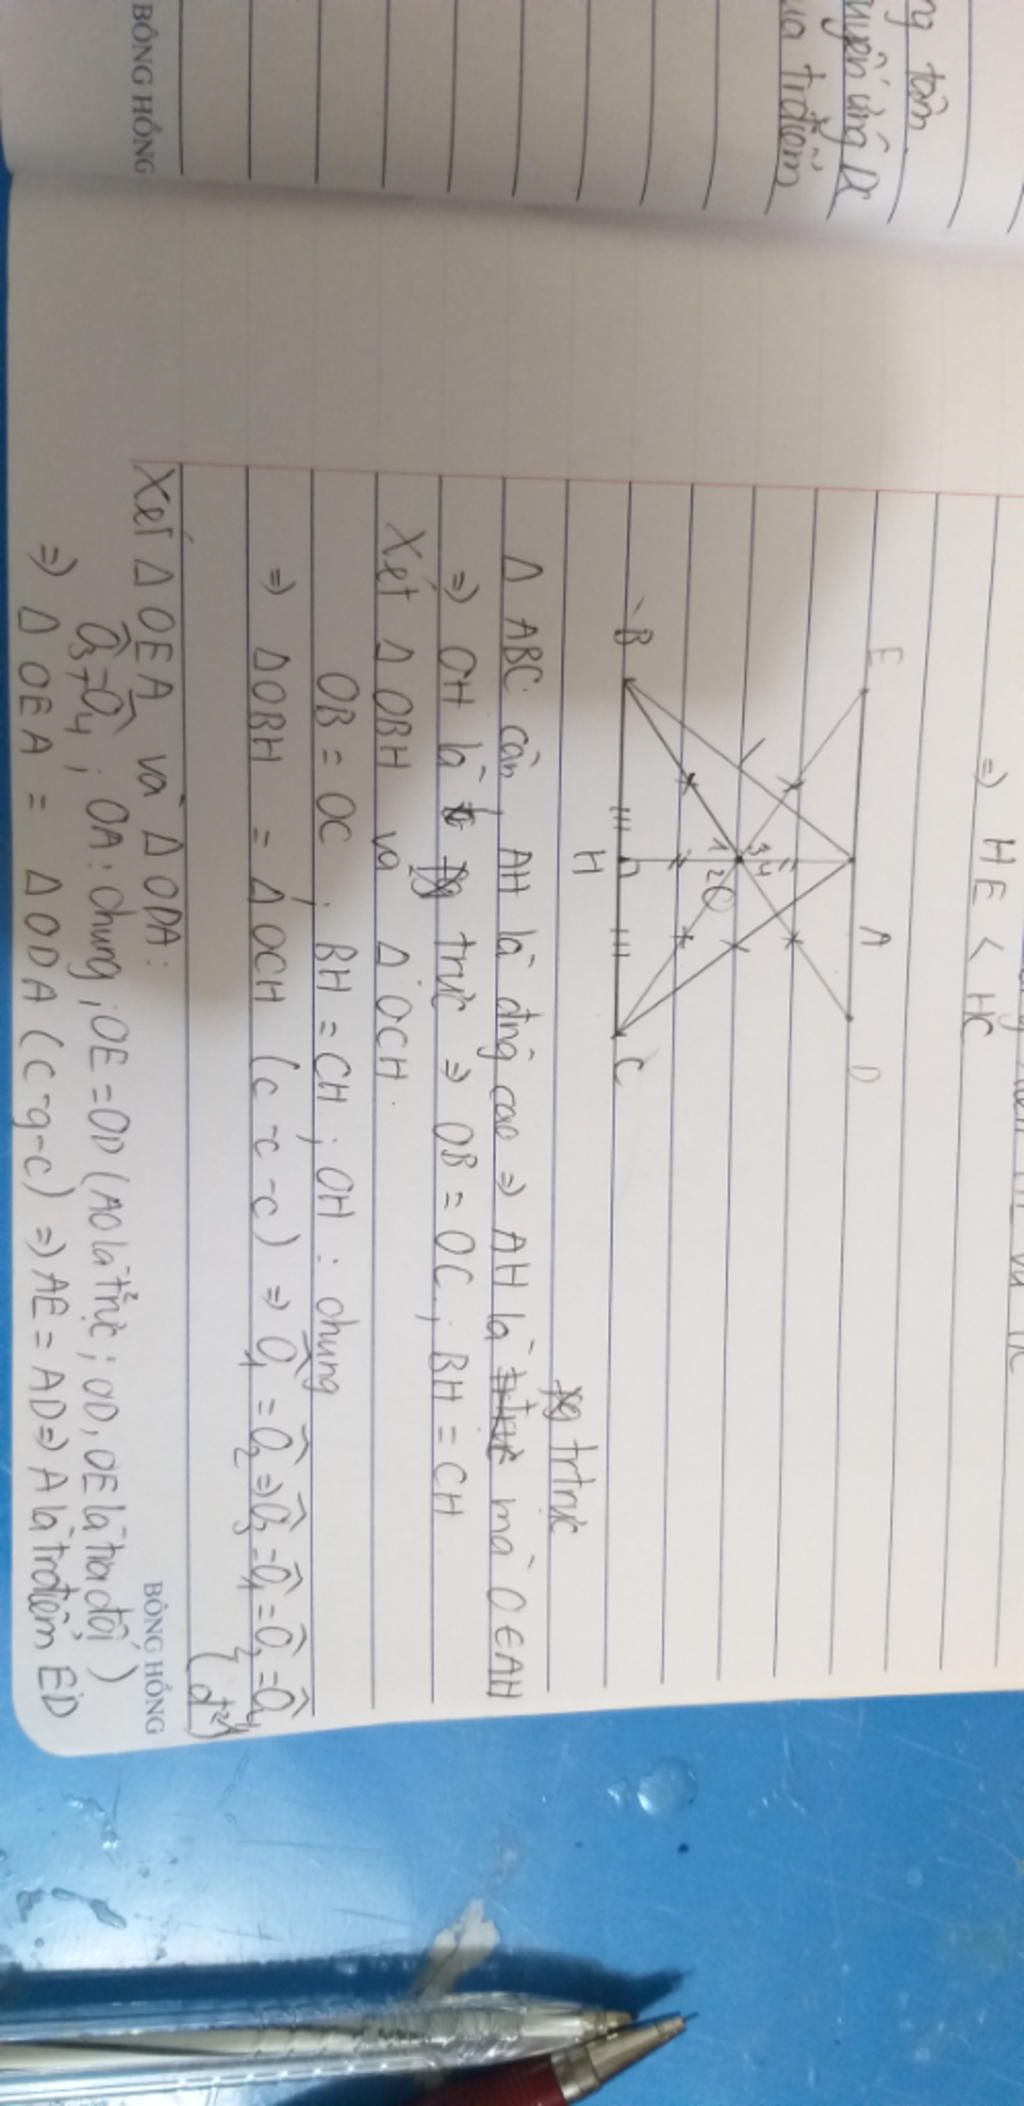 ng tâm.
huyến ứng DC
ua trđiểm
BÔNG HỒNG
=> HE < HC
E
A
D
B
H
C
1 2 3 4
O
trtrực
Δ ABC cân, AH là đng cao => AH là mà O ∈ AH
=> OH là trực => OB = OC, BH = CH
Xét Δ OBH và Δ OCH.
OB = OC; BH = CH; OH: chung
=> ΔOBH = ΔOCH (c-c-c) => Ô1 = Ô2 => Ô3 = Ô1 = Ô2 = Ô4
(đ²)
Xét Δ OEA và Δ ODA:
Ô3 = Ô4; OA: chung; OE = OD (AO là tr²trực; OD, OE là tia đối)
=> Δ OEA = Δ ODA (c-g-c) => AE = AD => A là trđiểm ED
BÔNG HỒNG